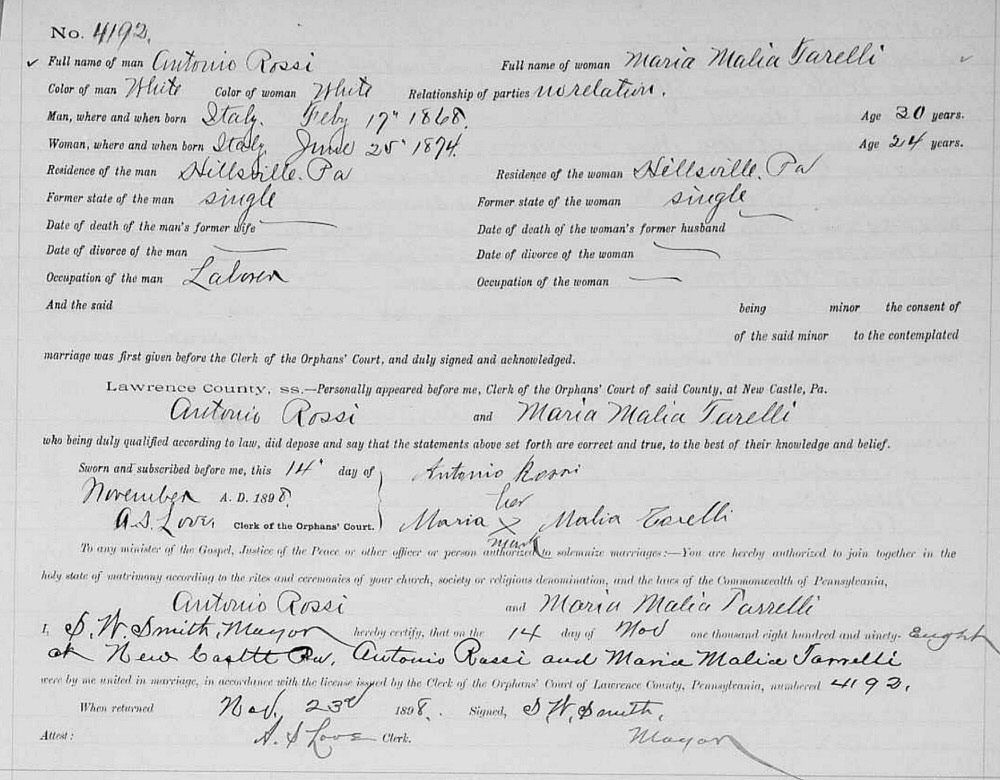 No. 4192.
Full name of man Antonio Rossi Full name of woman Maria Malia Tarelli
Color of man White Color of woman White Relationship of parties no relation.
Man, where and when born Italy. Feby 17" 1868. Age 30 years.
Woman, where and when born Italy. June 25" 1874. Age 24 years.
Residence of the man Hillsville. Pa Residence of the woman Hillsville. Pa
Former state of the man single Former state of the woman single
Date of death of the man's former wife Date of death of the woman's former husband
Date of divorce of the man Date of divorce of the woman
Occupation of the man Laborer Occupation of the woman
And the said being minor the consent of
of the said minor to the contemplated
marriage was first given before the Clerk of the Orphans' Court, and duly signed and acknowledged.
Lawrence County, ss.—Personally appeared before me, Clerk of the Orphans' Court of said County, at New Castle, Pa.
Antonio Rossi and Maria Malia Tarelli
who being duly qualified according to law, did depose and say that the statements above set forth are correct and true, to the best of their knowledge and belief.
Sworn and subscribed before me, this 14" day of Antonio Rossi
November A. D. 1898. her
A. S. Love, Clerk of the Orphans' Court. Maria X Malia Tarelli
mark
To any minister of the Gospel, Justice of the Peace or other officer or person authorized to solemnize marriages:—You are hereby authorized to join together in the
holy state of matrimony according to the rites and ceremonies of your church, society or religious denomination, and the laws of the Commonwealth of Pennsylvania,
Antonio Rossi and Maria Malia Tarrelli
I, S. W. Smith, Mayor hereby certify, that on the 14 day of Nov one thousand eight hundred and ninety-Eught
at New Castle Pa, Antonio Rossi and Maria Malia Tarrelli
were by me united in marriage, in accordance with the license issued by the Clerk of the Orphans' Court of Lawrence County, Pennsylvania, numbered 4192.
When returned Nov. 23d 1898. Signed, S. W. Smith,
Attest: A. S Love Clerk. Mayor